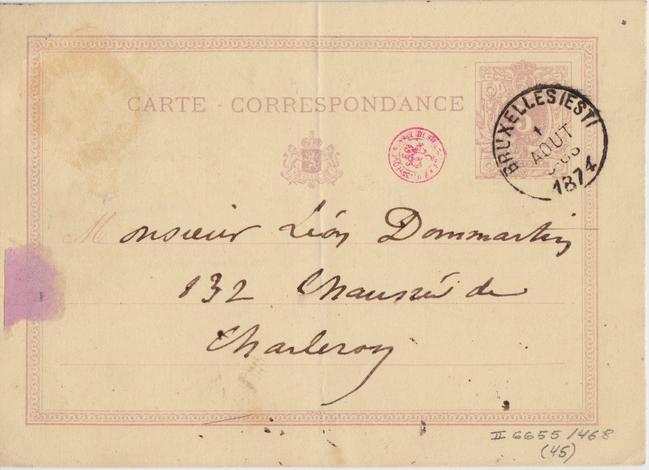 CARTE - CORRESPONDANCE
BRUXELLES (EST)
1
AOUT
1874
Monsieur Léon Dommartin
132 Chaussée de
Charleroy
II 6655 / 468
(45)